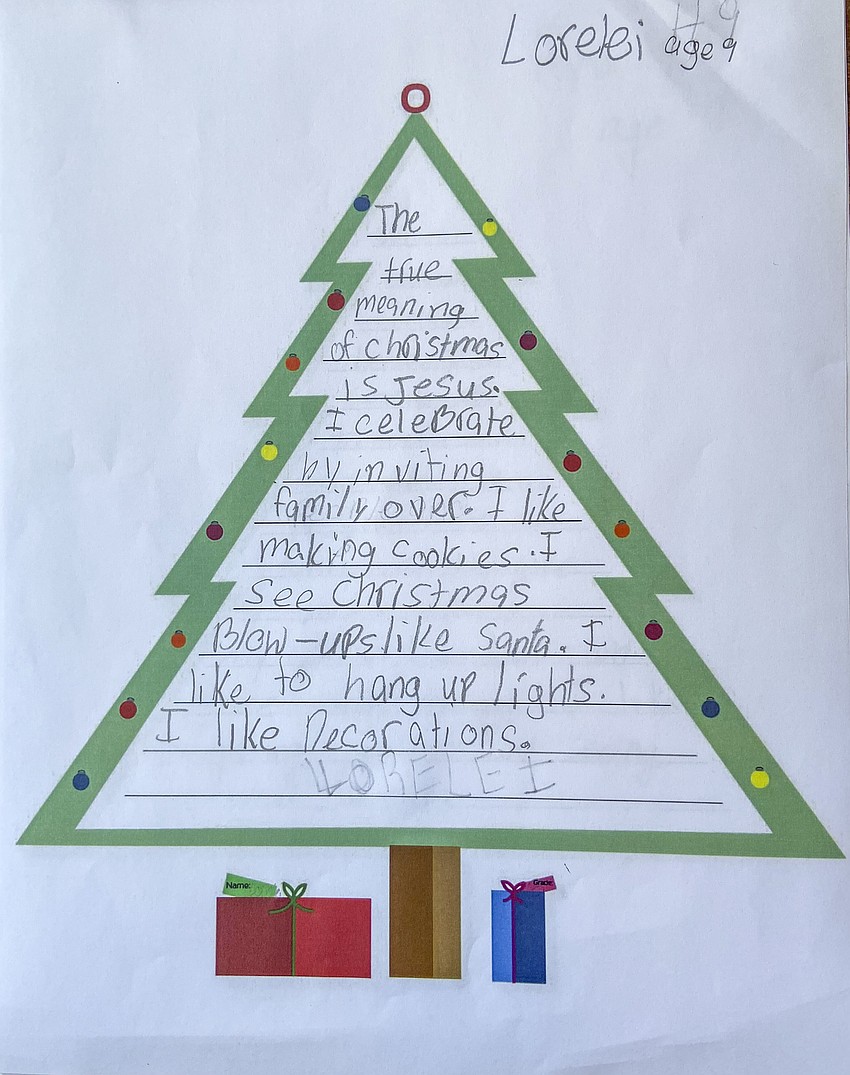 Lorelei age 9
The
true
meaning
of christmas
is Jesus.
I celeBrate
by inviting
family over. I like
making cookies. I
see christmas
Blow-ups like Santa. I
like to hang up lights.
I like Decorations.
LORELEI
Name:
Grade: